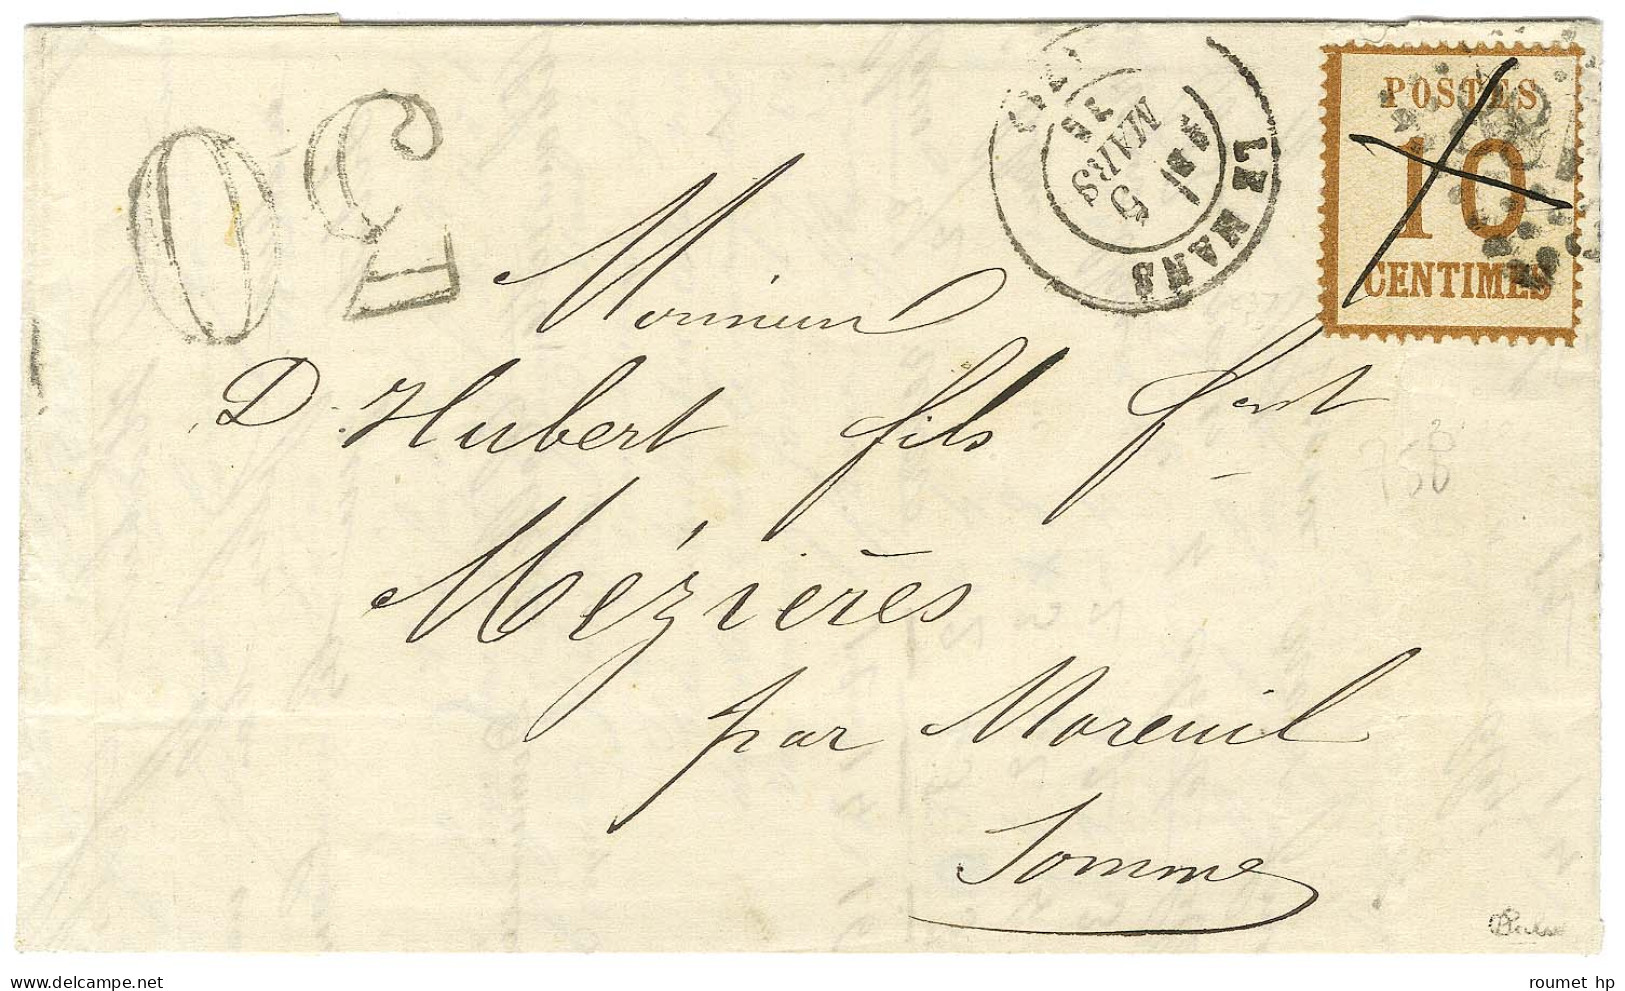 POSTES
10
CENTIMES
LE MANS
5
MARS
30
Monsieur
D. Hubert fils fcant
Mézières
par Moreuil
Somme
roumet hp